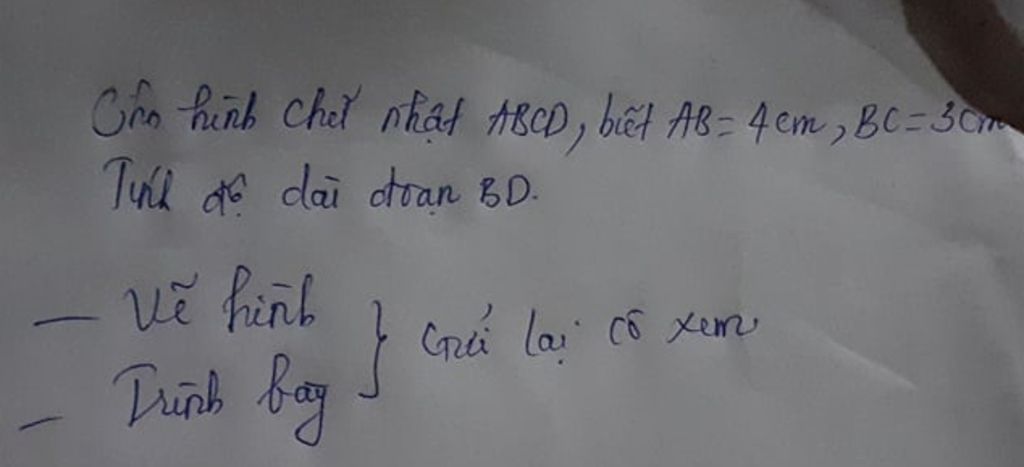 Cho hình chữ nhật ABCD, biết AB = 4cm, BC = 3cm
Tính độ dài đoạn BD.
— Vẽ hình
— Trình bày
} Gửi lại cô xem